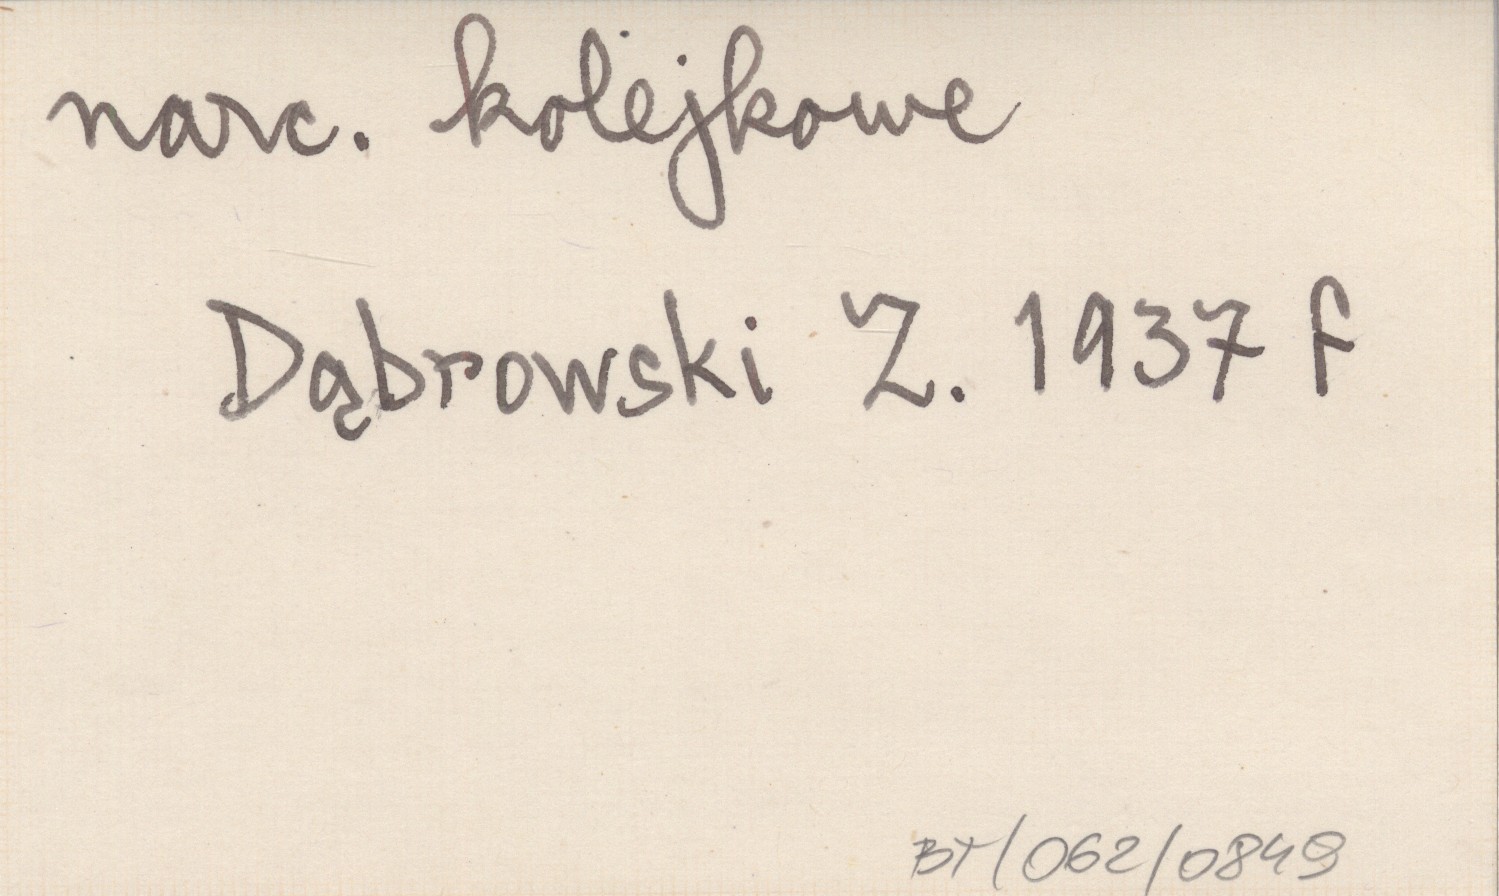 narc. kolejkowe
Dąbrowski Z. 1937 f
BT/062/0849